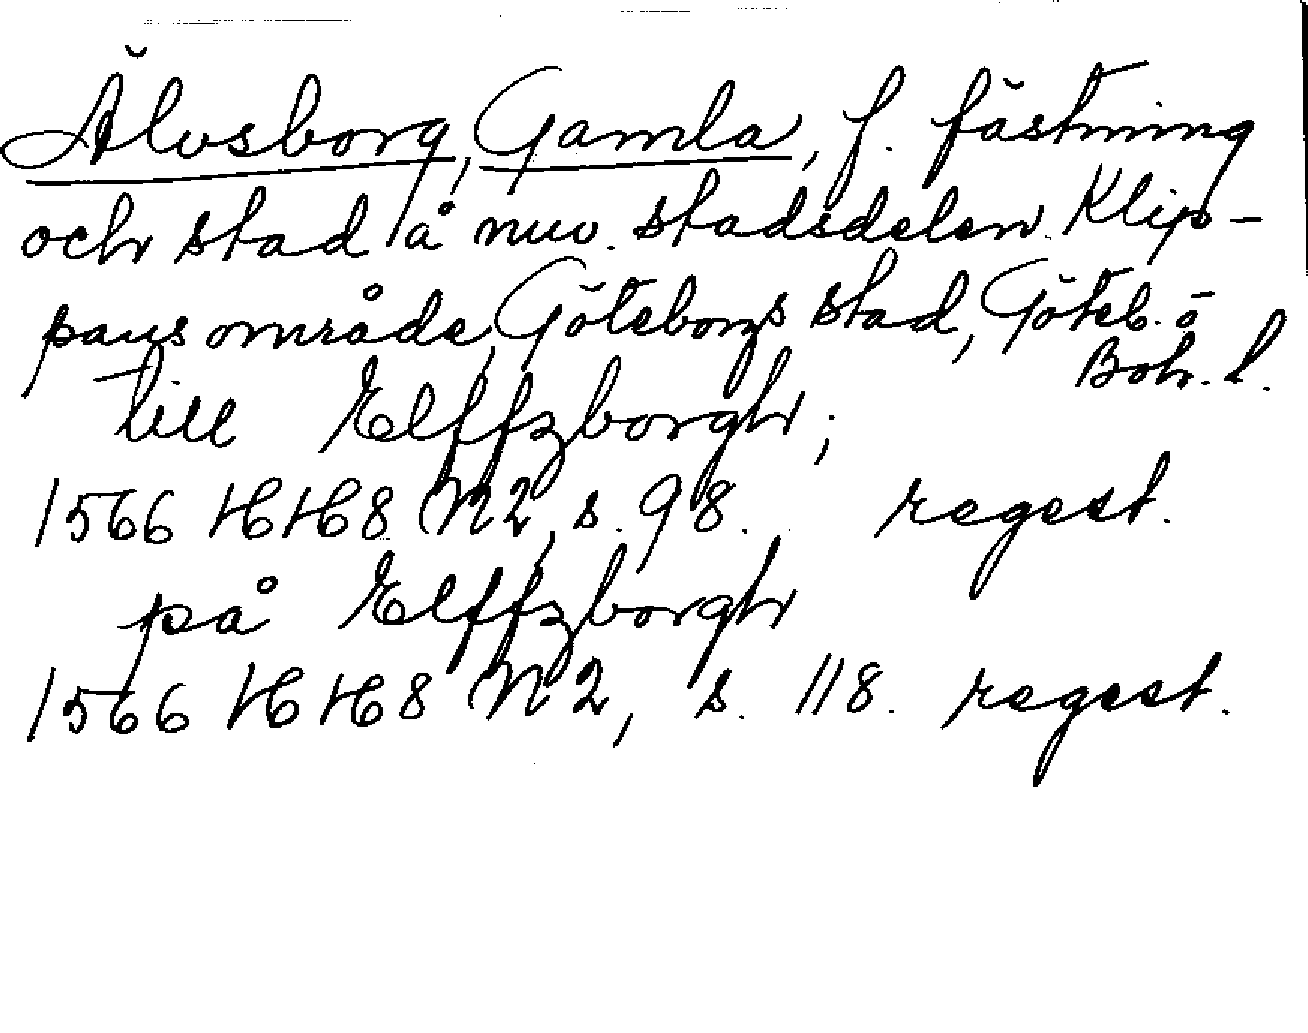 Älvsborg, Gamla, f. fästning
och stad å nuv. stadsdelen Klip-
pans område, Göteborgs stad, Göteb. o
Boh. l.
till Elffzborgh;
1566 HH8 N2, s. 98. regest.
på Elffzborgh
1566 HH8 N2, s. 118. regest.